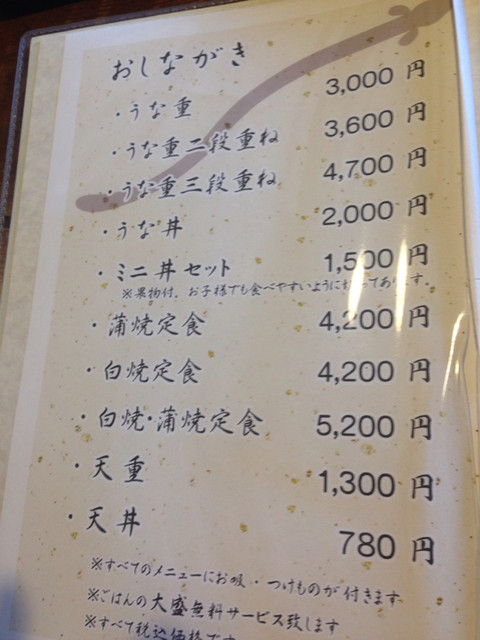 おしながき
・うな重 3,000 円
・うな重二段重ね 3,600 円
・うな重三段重ね 4,700 円
・うな丼 2,000 円
・ミニ丼セット 1,500 円
※果物付。お子様でも食べやすいように切ってあります。
・蒲焼定食 4,200 円
・白焼定食 4,200 円
・白焼・蒲焼定食 5,200 円
・天重 1,300 円
・天丼 780 円
※すべてのメニューにお吸・つけものが付きます
※ごはんの大盛無料サービス致します
※すべて税込価格です